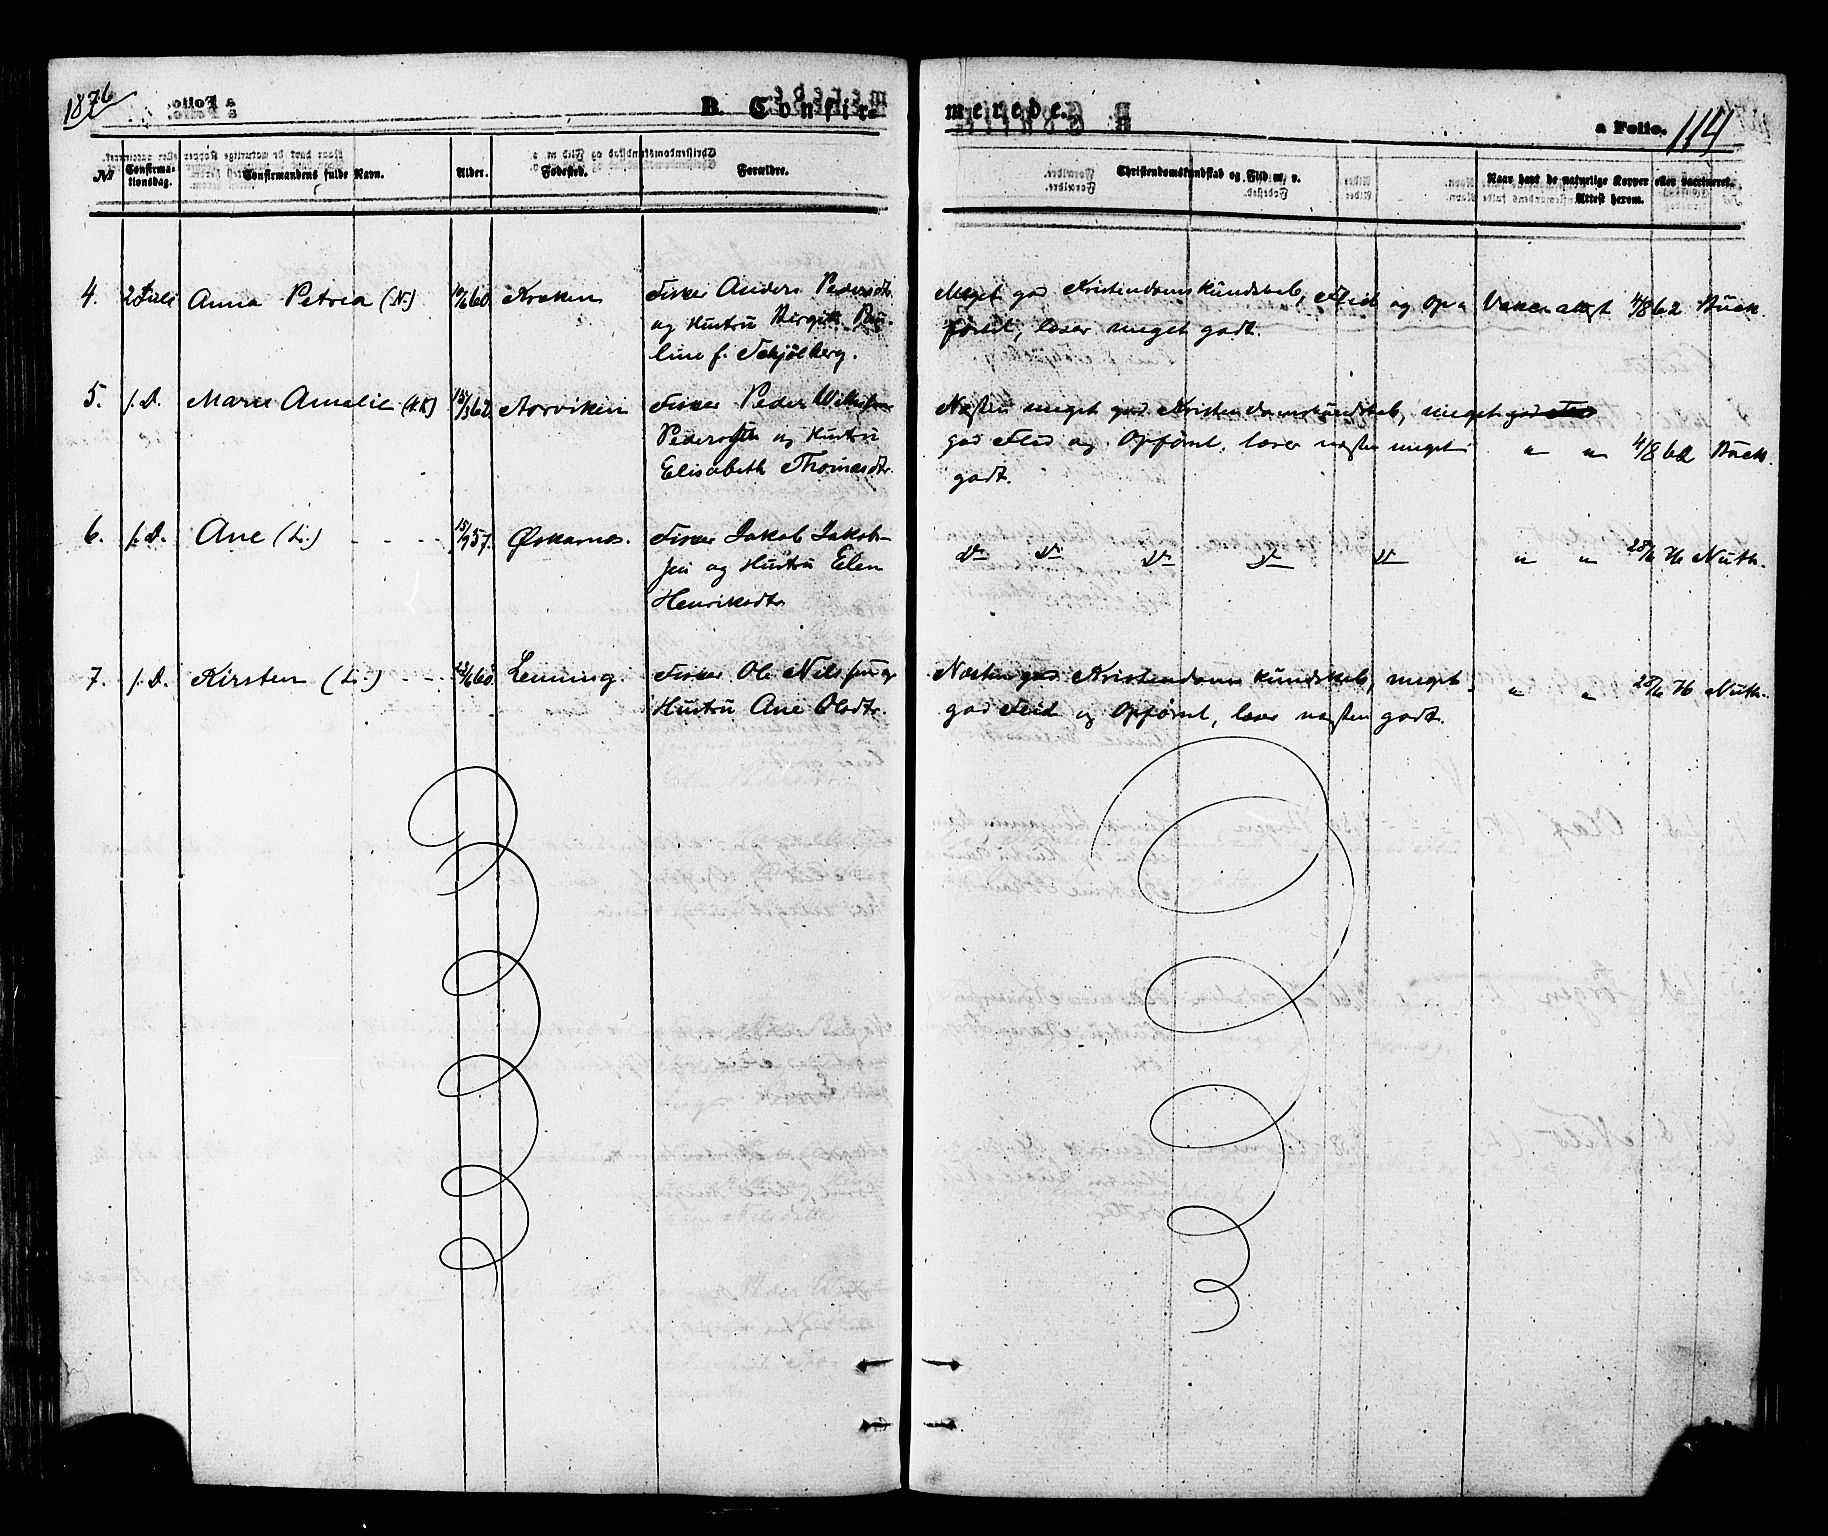 1876
a Folio.
B. Confir-
merede.
a Folio. 114
No
Confirma-
tionsdag.
Confirmandens fulde Navn.
Alder.
Fødested.
Forældre.
Christendomskundskab og Flid m. v.
Naar havt de naturlige Kopper eller vaccineret.
Attest herom.
4. 2 Juli Anna Petrea (N.) 60 Kraken Fisker Anders Pedersdt.
og Hustru Birgith Pau-
line f. Schjölberg.
Meget god Kristendomskundskab, Flid og Op- Vakc. attest 4/8 62 Buck.
førsel, læser meget godt.
5. s. D. Maren Amalie (N.K) 15/3 62 Aarviken Fisker Peder Wilhelm
Pedersen og Hustru
Elisabeth Thomasdtr.
Næsten meget god Kristendomskundskab, meget god
god Flid og Opførsel, læser næsten meget „ „ 4/8 62 Buck.
godt.
6. s. D. Ane (L.) - - - 15/9 57. Øskarnes. Fisker Jakob Jakob-
sen og Hustru Elen
Henriksdtr.
D° D° D° D° D° „ „ 76 Nuth.
7. s. D. Kirsten (L.) - - - 60 Lenning. Fisker Ole Nilssen og
Hustru Ane Olsdtr.
Næsten god Kristendomskundskab, meget
god Flid og Opførsel, læser næsten godt. „ „ 76 Nuth.